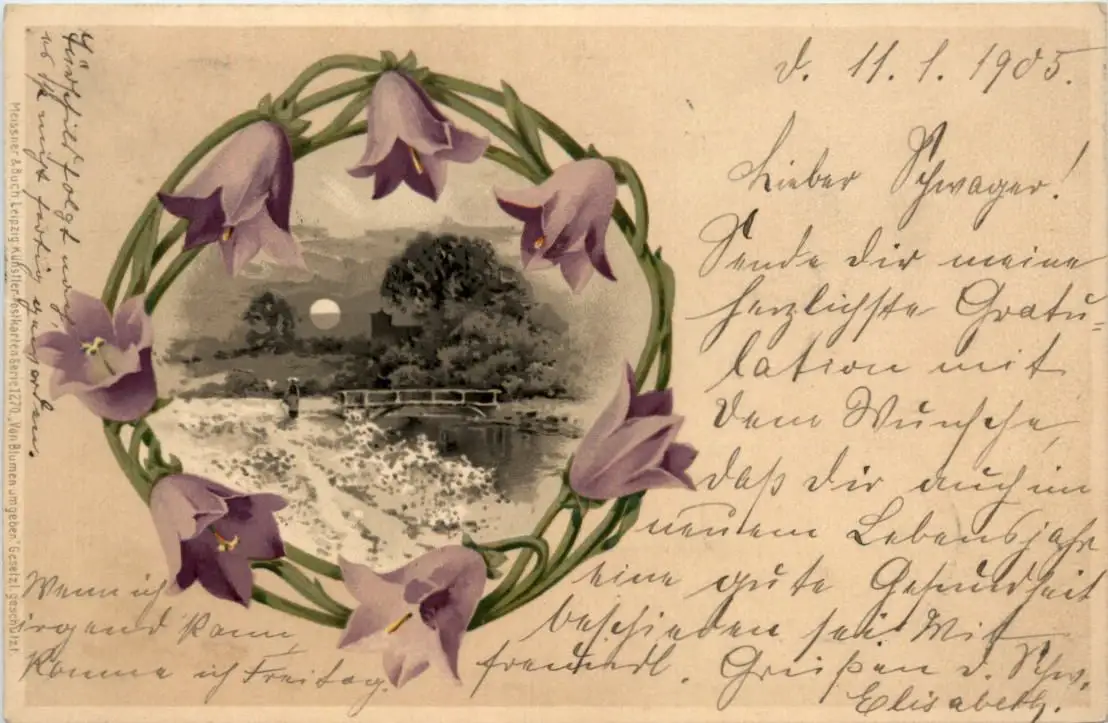 d. 11. 1. 1905.
Lieber Schwager!
Sende dir meine
herzlichste Gratu=
lation mit
dem Wunsche,
daß dir auch im
neuen Lebensjahr
eine gute Gesundheit
beschieden sei. Mit
freundl. Grüßen d. Schw.
Elisabeth.
Wenn ich
irgend kann,
komme ich Freitag.
folgt noch
nicht fertig geworden.
Meissner & Buch Leipzig Künstler-Postkarten Serie 1270 „Von Blumen umgeben" Gesetzl. geschützt